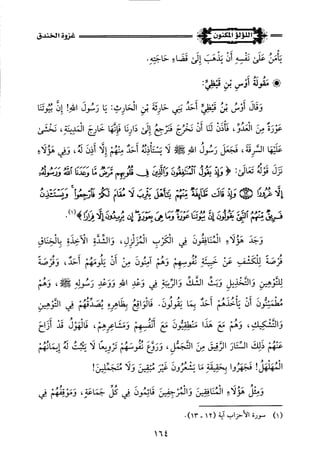 اللؤلؤ المكنون
غزوة الخندق
يَأْمَنُ عَلَى نَفْسِهِ أَنْ يَذْهَبَ إِلَى قَضَاءِ حَاجَتِهِ.
❁ مَقُولَةُ أَوْسِ بْنِ قَيْظِيٍّ:
وَقَالَ أَوْسُ بْنُ قَيْظِيٍّ أَحَدُ بَنِي حَارِثَةَ بْنِ الْحَارِثِ: يَا رَسُولَ اللهِ! إِنَّ بُيُوتَنَا
عَوْرَةٌ مِنَ الْعَدُوِّ، فَأْذَنْ لَنَا أَنْ نَخْرُجَ فَنَرْجِعَ إِلَى دَارِنَا فَإِنَّهَا خَارِجَ الْمَدِينَةِ، نَخْشَى
عَلَيْهَا السَّرِقَةَ، فَجَعَلَ رَسُولُ اللهِ ﷺ لَا يَسْتَأْذِنُهُ أَحَدٌ مِنْهُمْ إِلَّا أَذِنَ لَهُ، وَفِي هَؤُلَاءِ
نَزَلَ قَوْلُهُ تَعَالَى: ﴿وَإِذْ يَقُولُ الْمُنَافِقُونَ وَالَّذِينَ فِي قُلُوبِهِم مَّرَضٌ مَّا وَعَدَنَا اللَّهُ وَرَسُولُهُ
إِلَّا غُرُورًا ۝ وَإِذْ قَالَت طَّائِفَةٌ مِّنْهُمْ يَا أَهْلَ يَثْرِبَ لَا مُقَامَ لَكُمْ فَارْجِعُوا وَيَسْتَأْذِنُ
فَرِيقٌ مِّنْهُمُ النَّبِيَّ يَقُولُونَ إِنَّ بُيُوتَنَا عَوْرَةٌ وَمَا هِيَ بِعَوْرَةٍ إِن يُرِيدُونَ إِلَّا فِرَارًا﴾(١).
وَجَدَ هَؤُلَاءِ الْمُنَافِقُونَ فِي الْكَرْبِ الْمُزَلْزِلِ، وَالشِّدَّةِ الْآخِذَةِ بِالْخِنَاقِ
فُرْصَةً لِلْكَشْفِ عَنْ خَبِيئَةِ نُفُوسِهِمْ وَهُمْ آمِنُونَ مِنْ أَنْ يَلُومَهُمْ أَحَدٌ، وَفُرْصَةً
لِلتَّوْهِينِ وَالتَّخْذِيلِ وَبَثِّ الشَّكِّ وَالرِّيبَةِ فِي وَعْدِ اللهِ وَوَعْدِ رَسُولِهِ ﷺ، وَهُمْ
مُطْمَئِنُّونَ أَنْ يَأْخُذَهُمْ أَحَدٌ بِمَا يَقُولُونَ. فَالْوَاقِعُ بِظَاهِرِهِ يُصَدِّقُهُمْ فِي التَّوْهِينِ
وَالتَّشْكِيكِ، وَهُمْ مَعَ هَذَا مَنْطِقِيُّونَ مَعَ أَنْفُسِهِمْ وَمَشَاعِرِهِمْ، فَالْهَوْلُ قَدْ أَزَاحَ
عَنْهُمْ ذَلِكَ السِّتَارَ الرَّقِيقَ مِنَ التَّجَمُّلِ، وَرَوَّعَ نُفُوسَهُمْ تَرْوِيعًا لَا يَثْبُتُ لَهُ إِيمَانُهُمْ
الْمُهَلْهَلُ! فَجَهَرُوا بِحَقِيقَةِ مَا يَشْعُرُونَ غَيْرَ مُبْقِينَ وَلَا مُتَجَمِّلِينَ!
وَمِثْلُ هَؤُلَاءِ الْمُنَافِقِينَ وَالْمُرْجِفِينَ قَائِمُونَ فِي كُلِّ جَمَاعَةٍ، وَمَوْقِفُهُمْ فِي
(١) سورة الأحزاب آية (١٢ ، ١٣).
١٦٤